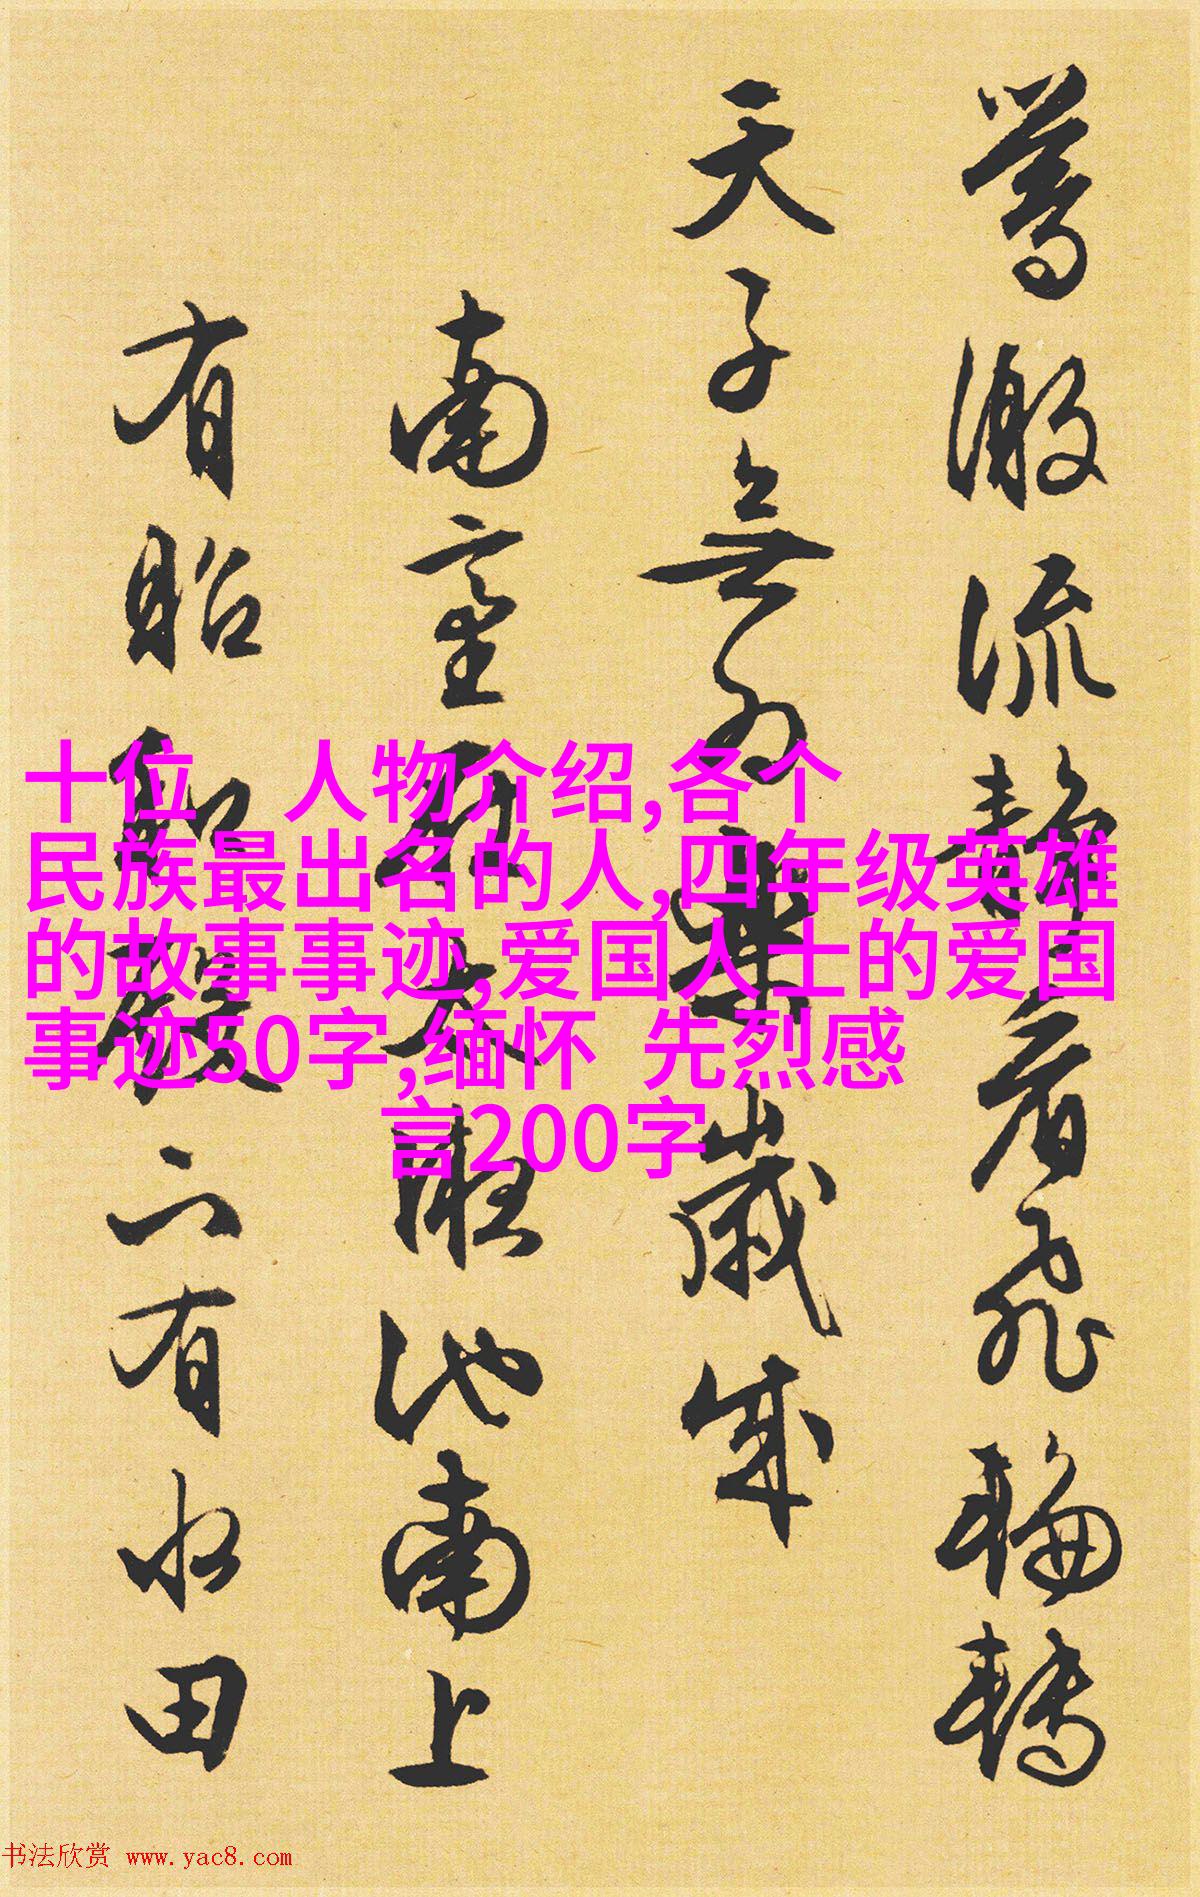 激流靜看飛輪轉
天子無為樂歲成
南臺大池南上
有昭殿有水田
十位 人物介绍,各个
民族最出名的人,四年级英雄
的故事事迹,爱国人士的爱国
事迹50字,缅怀 先烈感
言200字
书法欣赏 www.yac8.com